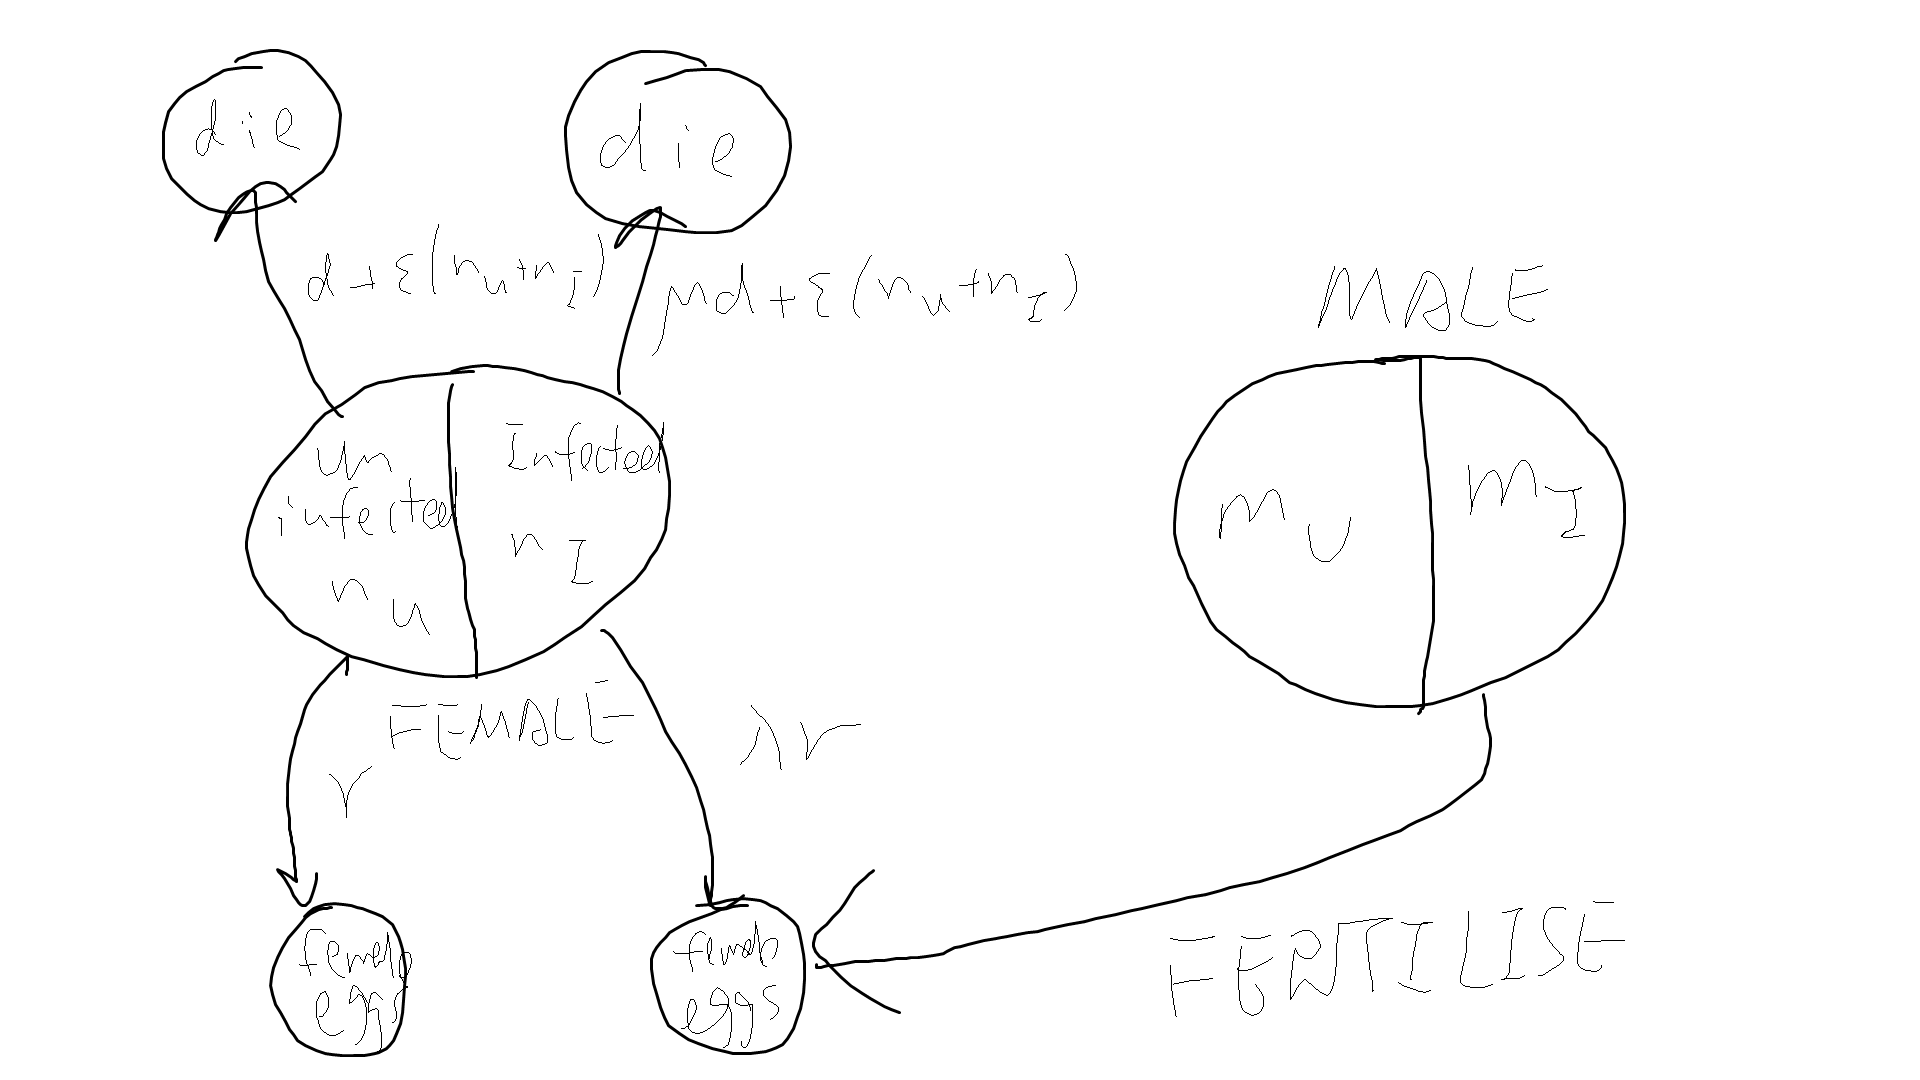 die
die
d+ε(nᵤ+n_I)
μd+ε(nᵤ+n_I)
MALE
un
infected
nᵤ
Infected
n_I
m_U
m_I
FEMALE
r
λr
female
eggs
female
eggs
FERTILISE